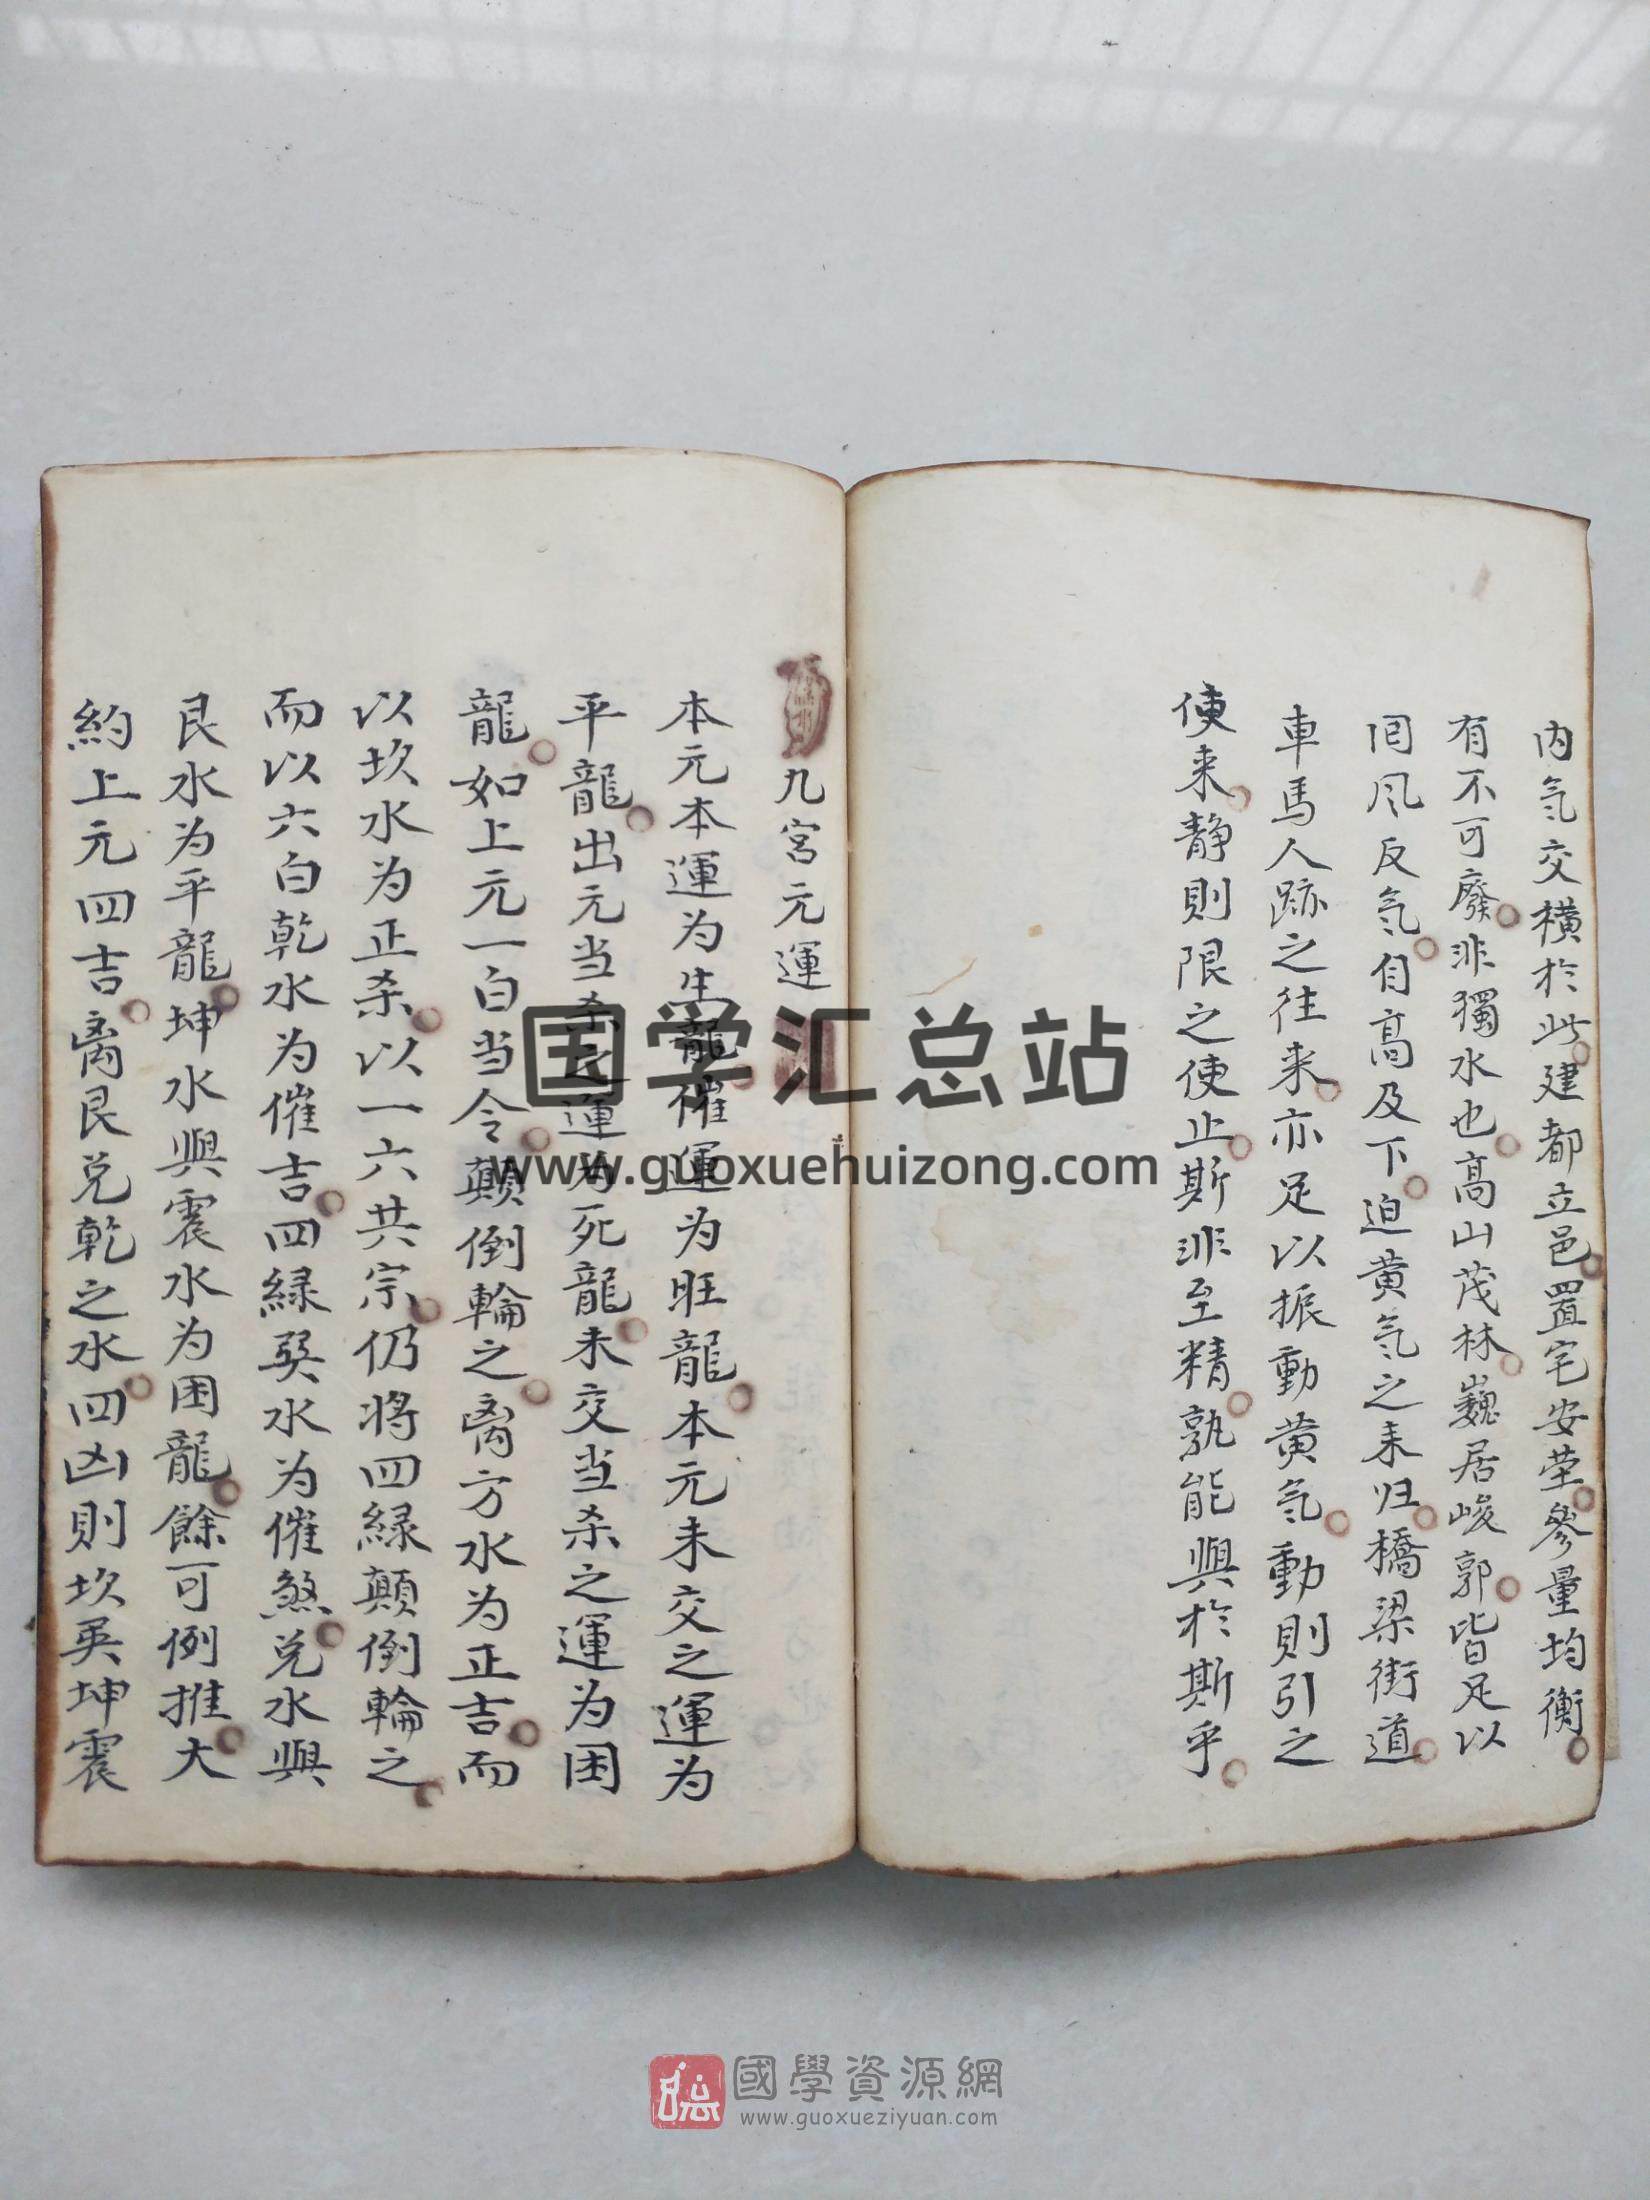 内氣交横於此建都立邑置宅安茔參量均衡
有不可廢非獨水也高山茂林巍居峻郭皆足以
囘风反氣自高及下迫黄氣之来归橋梁街道
車馬人跡之往来亦足以振動黄氣動則引之
使来静則限之使止斯非至精孰能與於斯乎
九宮元運
本元本運为生龍催運为旺龍本元未交之運为
平龍出元当杀之運为死龍未交当杀之運为困
龍如上元一白当令顛倒輪之离方水为正吉而
以坎水为正杀以一六共宗仍将四緑顛倒輪之
而以六白乾水为催吉四緑巽水为催煞兑水與
艮水为平龍坤水與震水为困龍餘可例推大
約上元四吉离艮兑乾之水四凶則坎巽坤震
国学汇总站
www.guoxuehuizong.com
國學資源網
www.guoxueziyuan.com